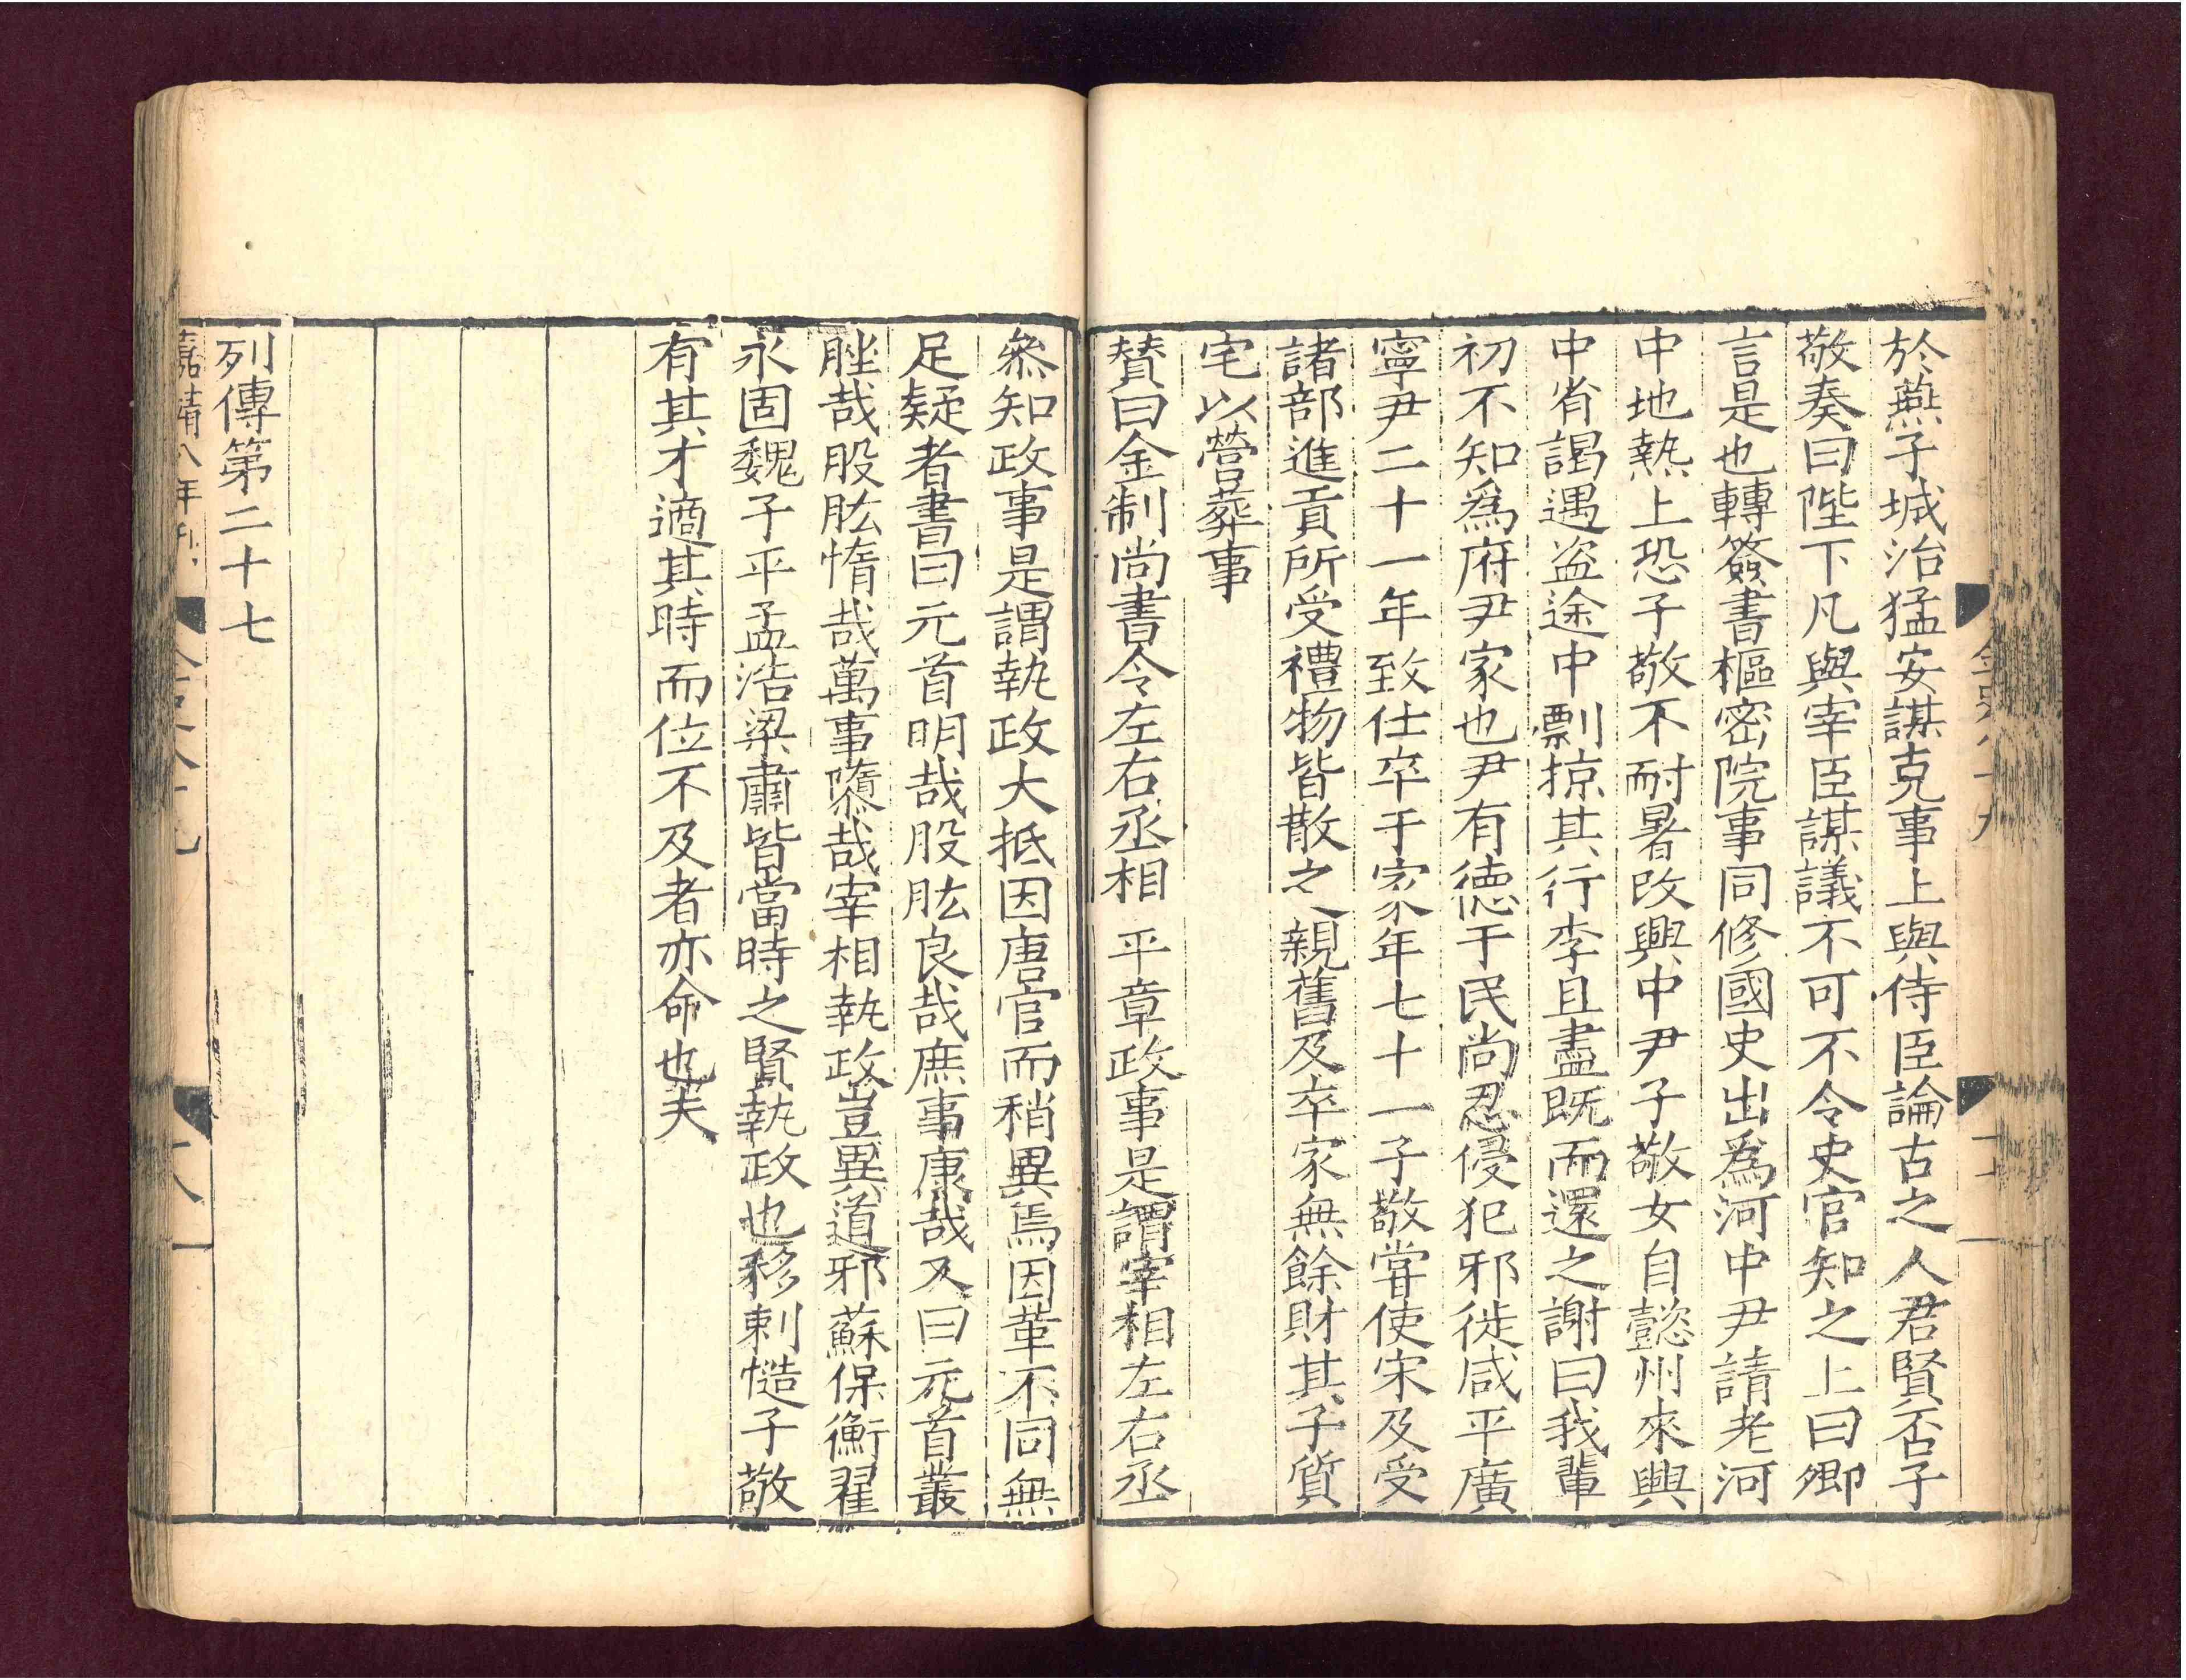 於燕子城治猛安謀克事上與侍臣論古之人君賢否子
敬奏曰陛下凡與宰臣謀議不可不令史官知之上曰卿
言是也轉簽書樞密院事同修國史出為河中尹請老河
中地熱上恐子敬不耐暑改興中尹子敬女自懿州來興
中省謁遇盗途中剽掠其行李且盡既而還之謝曰我輩
初不知為府尹家也尹有徳于民尚忍侵犯邪徙咸平廣
寧尹二十一年致仕卒于家年七十一子敬嘗使宋及受
諸部進貢所受禮物皆散之親舊及卒家無餘財其子質
宅以營葬事
賛曰金制尚書令左右丞相平章政事是謂宰相左右丞
叅知政事是謂執政大抵因唐官而稍異焉因革不同無
足疑者書曰元首明哉股肱良哉庶事康哉又曰元首叢
脞哉股肱惰哉萬事隳哉宰相執政豈異道邪蘇保衡翟
永固魏子平孟浩梁肅皆當時之賢執政也移剌慥子敬
有其才適其時而位不及者亦命也夫
列傳第二十七
嘉靖八年刊